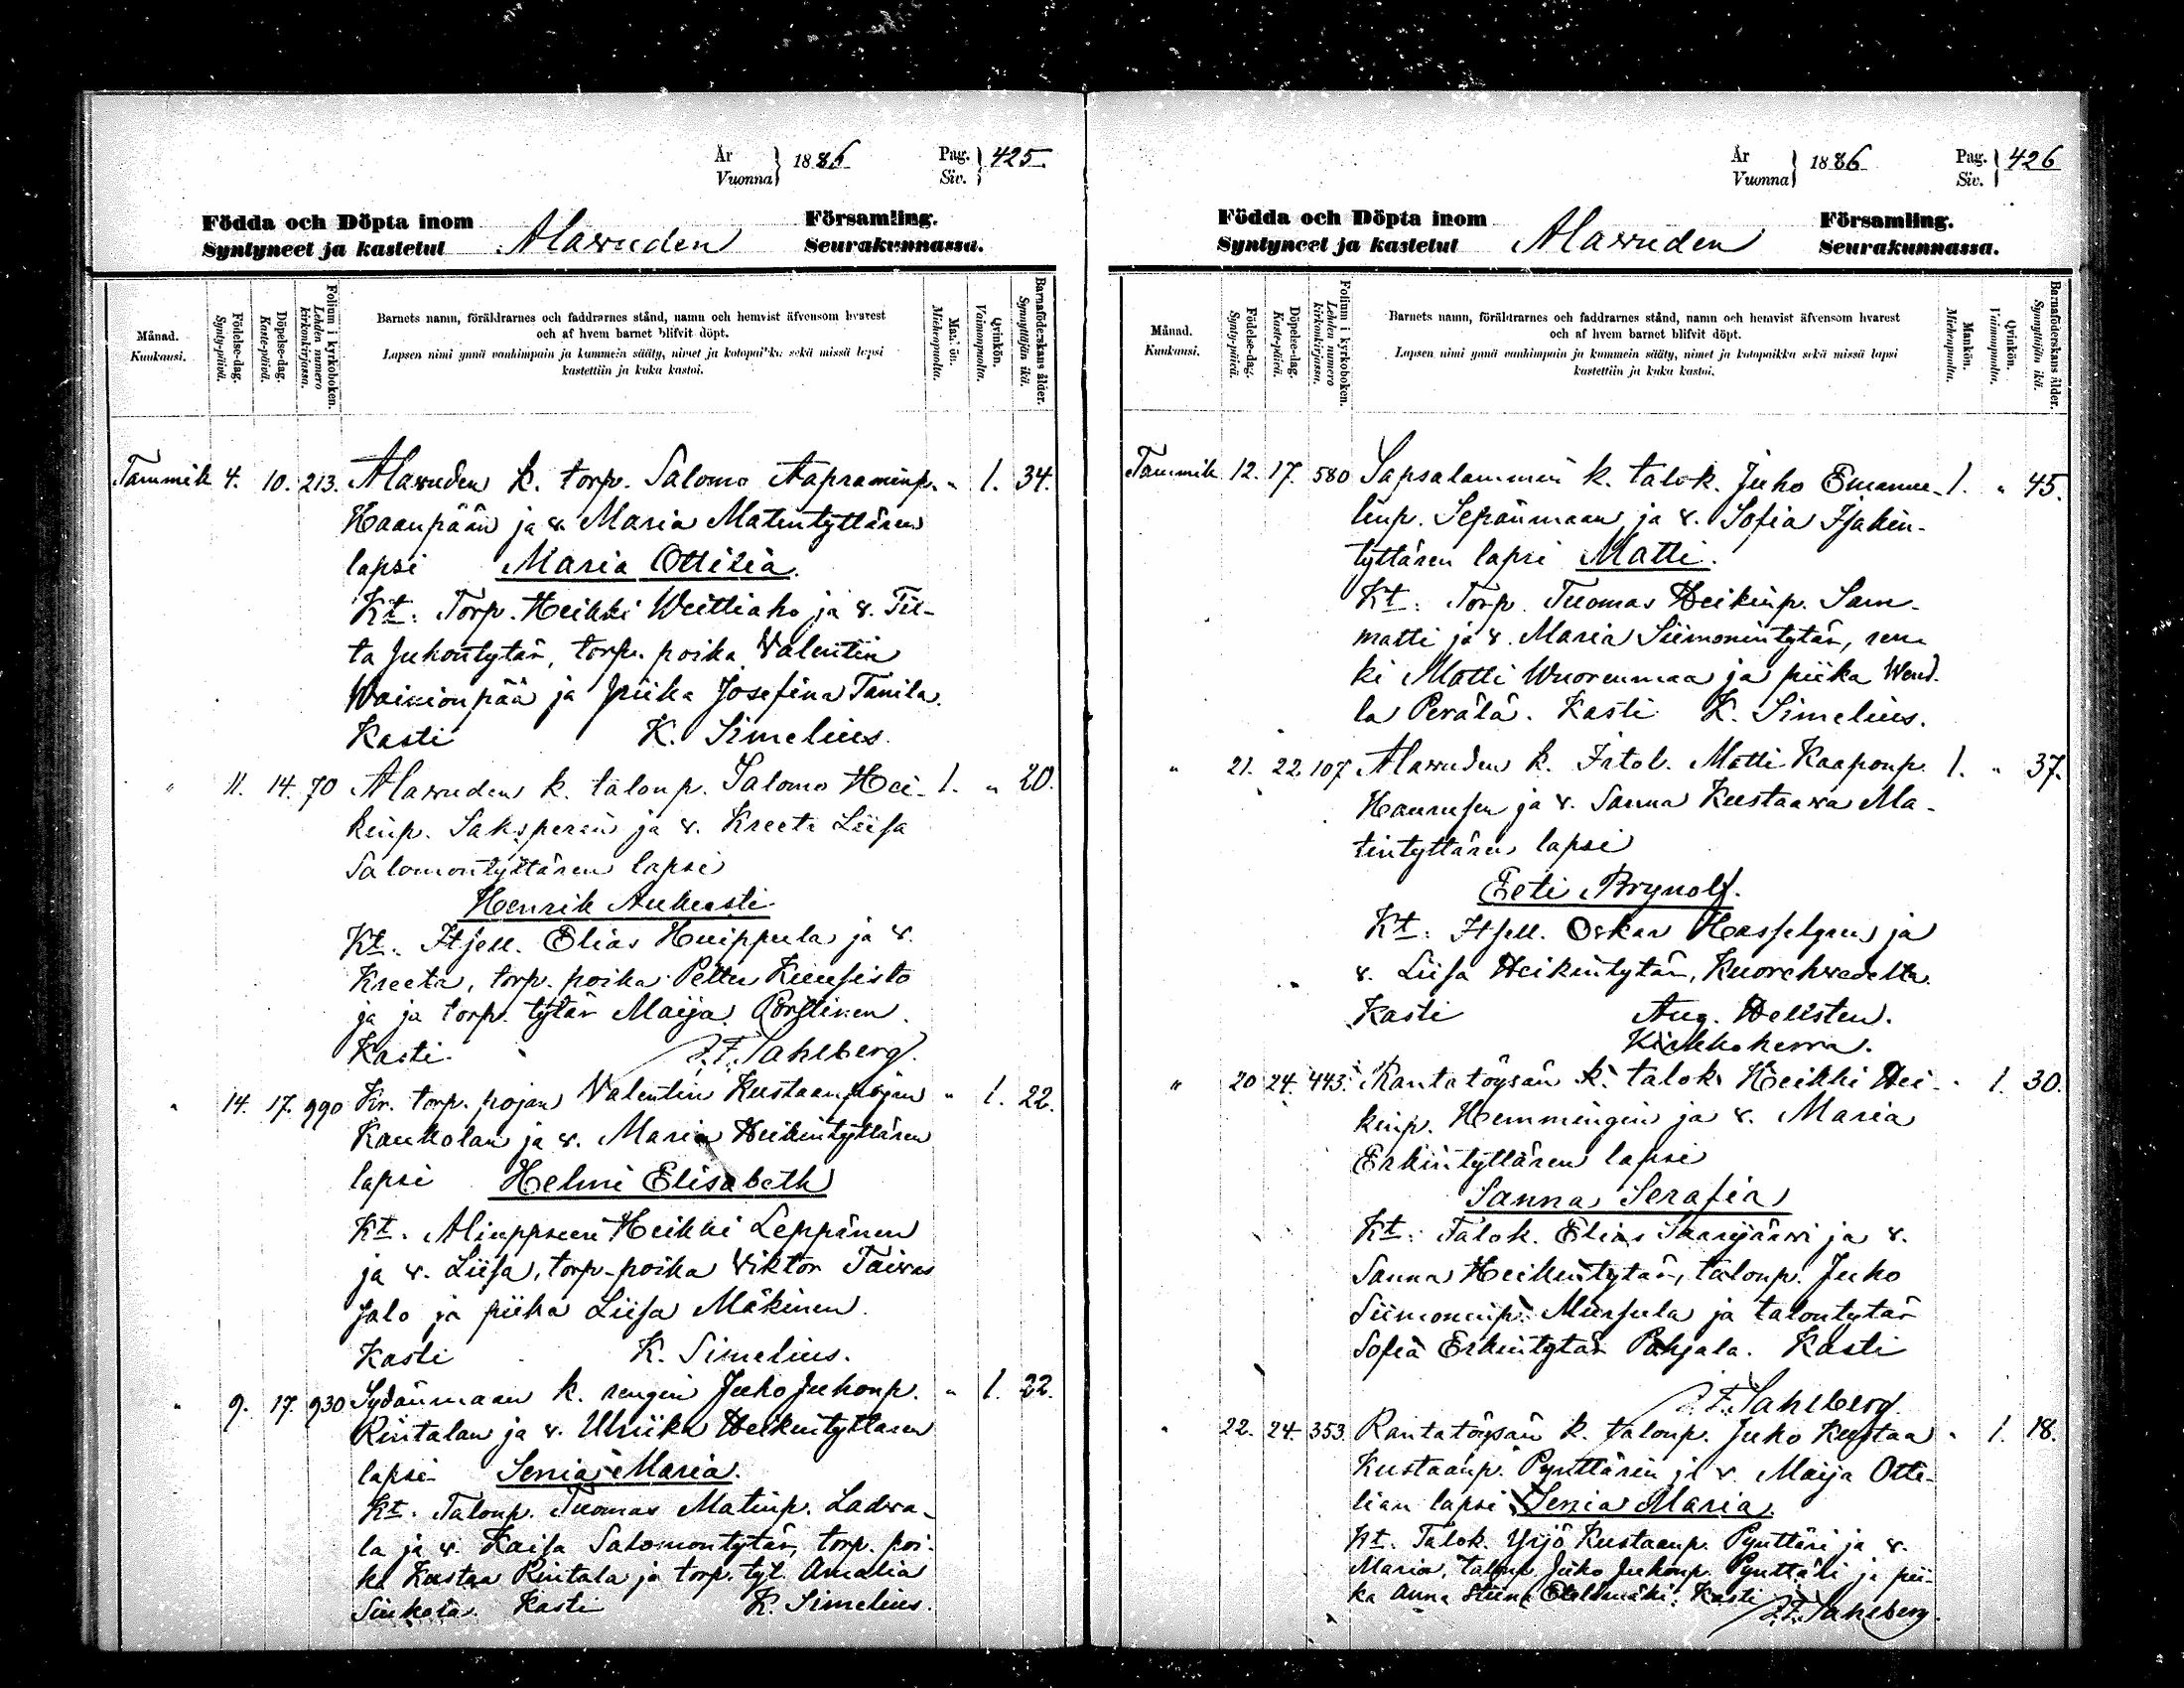 År Vuonna } 1886 Pag. Siv. } 425.
Födda och Döpta inom Församling.
Syntyneet ja kastetut Alavuden Seurakunnassa.
Månad. Kuukausi.
Födelse-dag. Synty-päivä.
Döpelse-dag. Kaste-päivä.
Folium i kyrkoboken. Lehden numero kirkonkirjassa.
Barnets namn, föräldrarnes och faddrarnes stånd, namn och hemvist äfvensom hvarest
och af hvem barnet blifvit döpt.
Lapsen nimi ynnä vanhimpain ja kummein sääty, nimet ja kotopaikka sekä missä lapsi
kastettiin ja kuka kastoi.
Mankön. Miehenpuolta.
Qvinkön. Vaimonpuolta.
Barnaföderskans ålder. Synnyttäjän ikä.
Tammik 4. 10. 213. Alavuden k. torp. Salomo Aapraminp. " 1. 34.
Haanpään ja v. Maria Matintyttären
lapsi Maria Ottilia.
Kt: Torp. Heikki Weittiaho ja v. Tii-
ta Juhontytär, torp. poika Valentin
Wainionpää ja piika Josefina Tanila.
Kasti K. Simelius.
" 11. 14. 70 Alavuden k. talonp. Salomo Hei- 1. " 20.
kinp. Saksperän ja v. Kreeta Liisa
Salomontyttären lapsi
Henrik Aukusti.
Kt: Itsell. Elias Huippula ja v.
Kreeta, torp. poika Petter Kuusisto
ja ja torp. tytär Maija
Kasti J.F. Sahlberg.
" 14. 17. 990 Kr. torp. pojan Valentin Kustaanpojan " 1. 22.
Kaukolan ja v. Maria Heikintyttären
lapsi Helmi Elisabeth
Kt. Aliuppseeri Heikki Leppänen
ja v. Liisa, torp. poika Viktor Taivas
Salo ja piika Liisa Mäkinen.
Kasti K. Simelius.
" 9. 17. 930 Sydänmaan k. rengin Juho Juhonp. " 1. 22.
Rintalan ja v. Ulriika Heikintyttären
lapsi Senia Maria.
Kt. Talonp. Tuomas Matinp. Ladva-
la ja v. Kaisa Salomontytär, torp. poi-
ka Kustaa Rintala ja torp. tyt. Amalia
Sinkola. Kasti K. Simelius.
År Vuonna } 1886 Pag. Siv. } 426
Födda och Döpta inom Församling.
Syntyneet ja kastetut Alavuden Seurakunnassa.
Månad. Kuukausi.
Födelse-dag. Synty-päivä.
Döpelse-dag. Kaste-päivä.
Folium i kyrkoboken. Lehden numero kirkonkirjassa.
Barnets namn, föräldrarnes och faddrarnes stånd, namn och hemvist äfvensom hvarest
och af hvem barnet blifvit döpt.
Lapsen nimi ynnä vanhimpain ja kummein sääty, nimet ja kotopaikka sekä missä lapsi
kastettiin ja kuka kastoi.
Mankön. Miehenpuolta.
Qvinkön. Vaimonpuolta.
Barnaföderskans ålder. Synnyttäjän ikä.
Tammik 12. 17. 580 Sapsalammin k. talok. Juho Emanue- 1. " 45.
linp. Sepänmaan ja v. Sofia Isakin-
tyttären lapsi Matti.
Kt: Torp. Tuomas Heikinp. Sam-
matti ja v. Maria Siimonintytär, ren-
ki Matti Wuorenmaa ja piika Wend-
la Perälä. Kasti K. Simelius.
" 21. 22 107 Alavuden k. Matti Kaaponp. 1. " 37.
ja v. Sanna Kustaava Ma-
tintyttären lapsi
Eeti Brynolf.
Kt: Itsell. Oskar Hasselgren ja
v. Liisa Heikintytär, Kuorehvedeltä.
Kasti Aug. Hellsten.
Kirkkoherra.
" 20 24. 443. Rantatöysän k. talok. Heikki Hei- " 1. 30.
kinp. Hemmingin ja v. Maria
Erkintyttären lapsi
Sanna Serafia
Kt: Talok. Elias Saarijärvi ja v.
Sanna Heikintytär, talonp. Juho
Siimoninp. Mursula ja talontytär
Sofia Erkintytär Pohjala. Kasti
J.F. Sahlberg.
" 22. 24. 353. Rantatöysän k. talonp. Juho Kustaa " 1. 18.
Kustaanp. Pynttärin ja v. Maija Otti-
lian lapsi Senia Maria.
Kt. Talok. Yrjö Kustaanp. Pynttäri ja v.
Maria, talonp. Juho Juhonp. Pynttäri ja pii-
ka Anna Stiina Kasti J.F. Sahlberg.